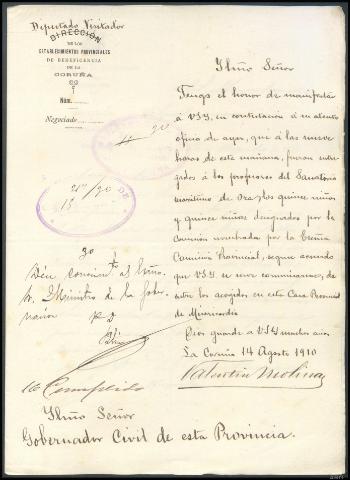 Deputado Visitador
DIRECCIÓN
DE LOS
ESTABLECIMIENTOS PROVINCIALES
DE BENEFICENCIA
DE LA
CORUÑA
Núm.
Negociado
Ylmo Señor
Tengo el honor de manifestar
á VSY, en contestación á su atento
oficio de ayer, que á las nueve
horas de esta mañana, fueron entre-
gados á los profesores del Sanatorio
marítimo de Oza, los quince niños
y quince niñas designados por la
Comisión nombrada por la Excma
Comisión Provincial, según acuerdo
que VSY se sirve comunicarme, de
entre los acogidos en esta Casa Provincial
de Misericordia.
Dios guarde á VSY muchos años
La Coruña 14 Agosto 1910
Valentín Molina
20
Dése al Ilmo.
Sr. Ministro de la Gober-
nación
Cumplido
Ylmo Señor
Gobernador Civil de esta Provincia.